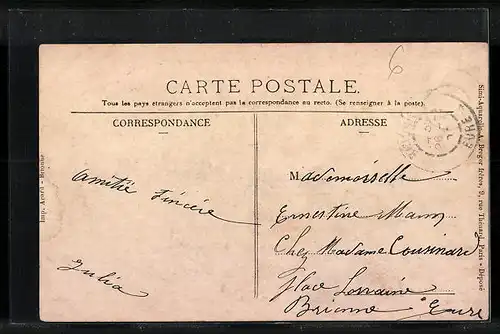 6
CARTE POSTALE.
Tous les pays étrangers n'acceptent pas la correspondance au recto. (Se renseigner à la poste).
CORRESPONDANCE
ADRESSE
EURE
Mademoiselle
Amitié Sincère
Ernestine
Chez Madame Cousinard
Julia
Place Lorraine
Brionne Eure
Imp. Acard - Brionne
Simi-Aquarelle A. Breger frères, 9, rue Thénard, Paris - Déposé